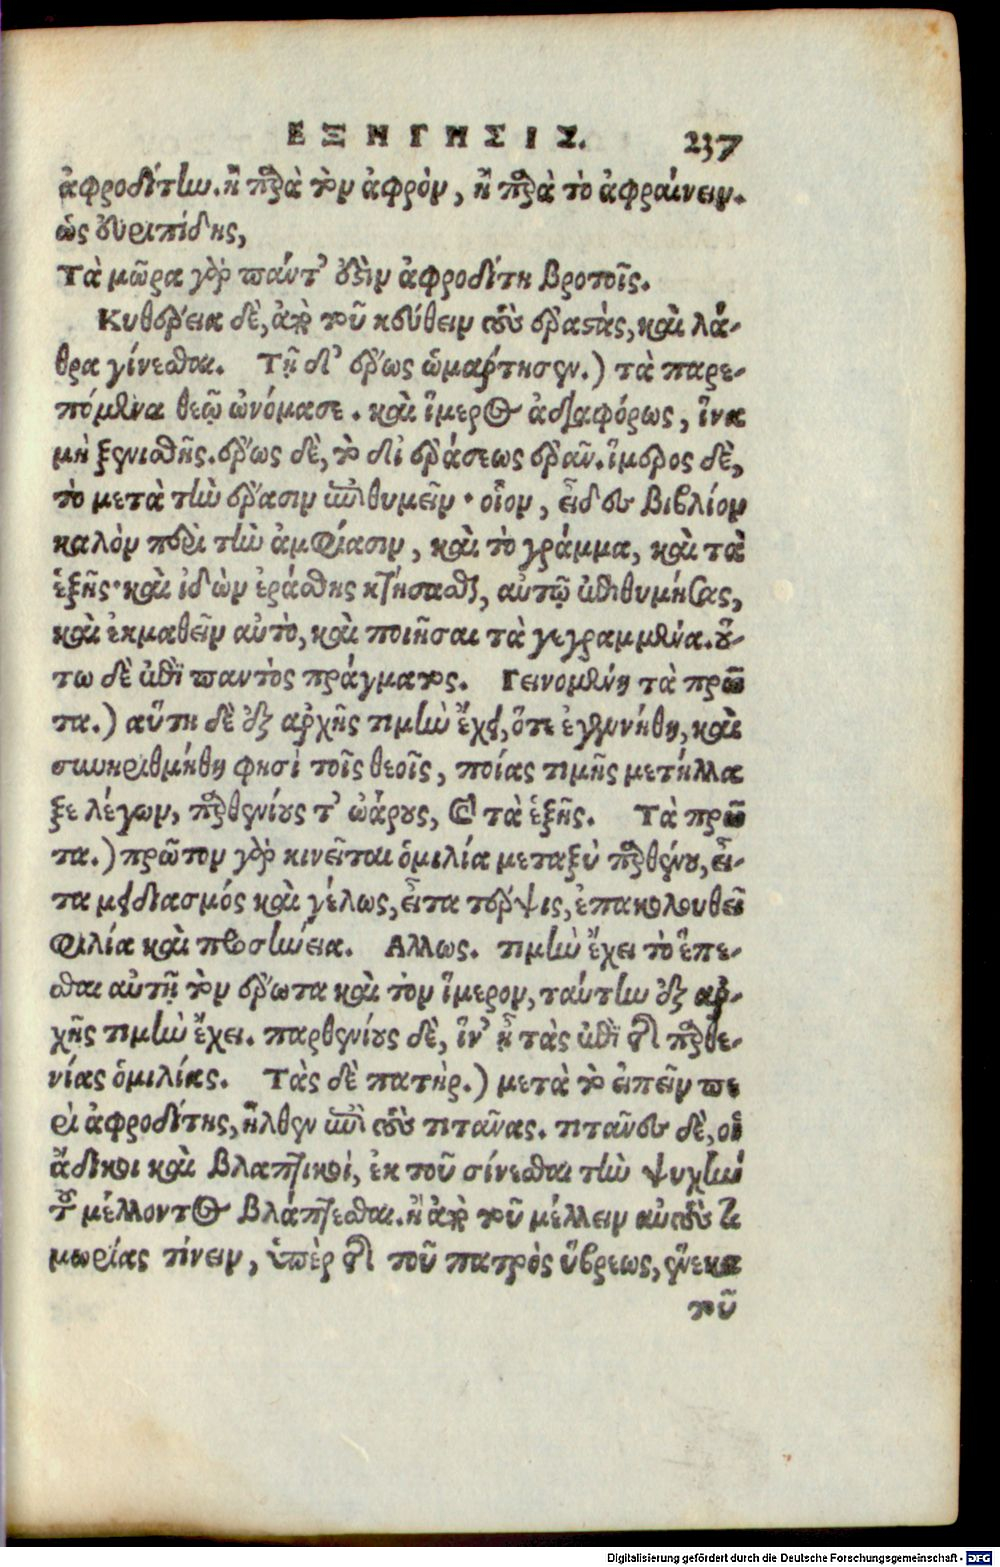 ΕΞΗΓΗΣΙΣ. 237
ἀφροδίτην. ἢ παρὰ τὸν ἀφρὸν, ἢ παρὰ τὸ ἀφραίνειν.
ὡς εὐριπίδης,
Τὰ μῶρα γὰρ πάντ' ἐςὶν ἀφροδίτη βροτοῖς.
Κυθέρεια δὲ, ἀπὸ τοῦ κεύθειν τοὺς ἐραςὰς, καὶ λά-
θρα γίνεσθαι. Τῇ δ' ἔρως ὡμάρτησεν.) τὰ παρε-
πόμενα θεῷ ὠνόμασε. καὶ ἵμερος ἀδιαφόρως, ἵνα
μὴ ξενισθῇς. ἔρως δὲ, τὸ δι' ὁράσεως ἐρᾶν. ἵμερος δὲ,
τὸ μετὰ τὴν ὅρασιν ἐπιθυμεῖν· οἷον, εἶδες βιβλίον
καλὸν περὶ τὴν ἀμφίασιν, καὶ τὸ γράμμα, καὶ τὰ
ἑξῆς· καὶ ἰδὼν ἐράσθης κτήσασθαι, αὐτῷ ἐπιθυμήσας,
καὶ ἐκμαθεῖν αὐτὸ, καὶ ποιῆσαι τὰ γεγραμμένα. οὕ-
τω δὲ ἐπὶ παντὸς πράγματος. Γεινομένη τὰ πρῶ
τα.) αὕτη δὲ ἐξ ἀρχῆς τιμὴν ἔχει, ὅτε ἐγεννήθη, καὶ
συνηριθμήθη φησὶ τοῖς θεοῖς, ποίας τιμῆς μετήλλα
ξε λέγων, παρθενίους τ' ὀάρους, καὶ τὰ ἑξῆς. Τὰ πρῶ
τα.) πρῶτον γὰρ κινεῖται ὁμιλία μεταξὺ παρθένου, εἶ-
τα μειδιασμός καὶ γέλως, εἶτα τέρψις, ἐπακολουθεῖ
φιλία καὶ προσήνεια. Αλλως. τιμὴν ἔχει τὸ ἕπε-
σθαι αὐτῇ τὸν ἔρωτα καὶ τὸν ἵμερον, ταύτην ἐξ ἀρ-
χῆς τιμὴν ἔχει. παρθενίους δὲ, ἵν' ᾖ τὰς ἐπὶ τῇ παρθε-
νίας ὁμιλίας. Τὰς δὲ πατὴρ.) μετὰ τὸ εἰπεῖν πε
ρὶ ἀφροδίτης, ἦλθεν ἐπὶ τοὺς τιτᾶνας. τιτᾶνες δὲ, οἱ
ἄδικοι καὶ βλαπτικοὶ, ἐκ τοῦ σίνεσθαι τὴν ψυχὴν
τοῦ μέλλοντος βλάπτεσθαι. ἢ ἀπὸ τοῦ μέλλειν αὐτοὺς τι
μωρίας τίνειν, ὑπὲρ τῆς τοῦ πατρὸς ὕβρεως, ἕνεκα
τοῦ
Digitalisierung gefördert durch die Deutsche Forschungsgemeinschaft - DFG